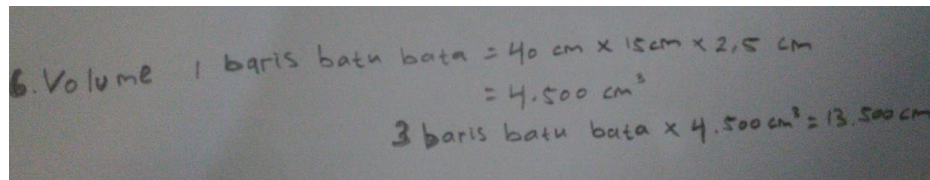 6. Volume 1 baris batu bata = 40 cm x 15 cm x 2,5 cm
= 4.500 cm³
3 baris batu bata x 4.500 cm³ = 13.500 cm